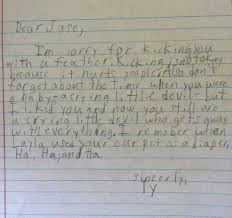 Dear Jase,
I'm sorry for kicking you
with a feather. Kicking is not okay
because it hurts people. Also don't
forget about the time when you were
a baby a crying little devil but
I liked you and now you still are
a crying little devil who gets away
with everything. I remeber when
Layla used your carpet as a diaper.
Ha, Ha, and Ha.
Sincerly,
Ty